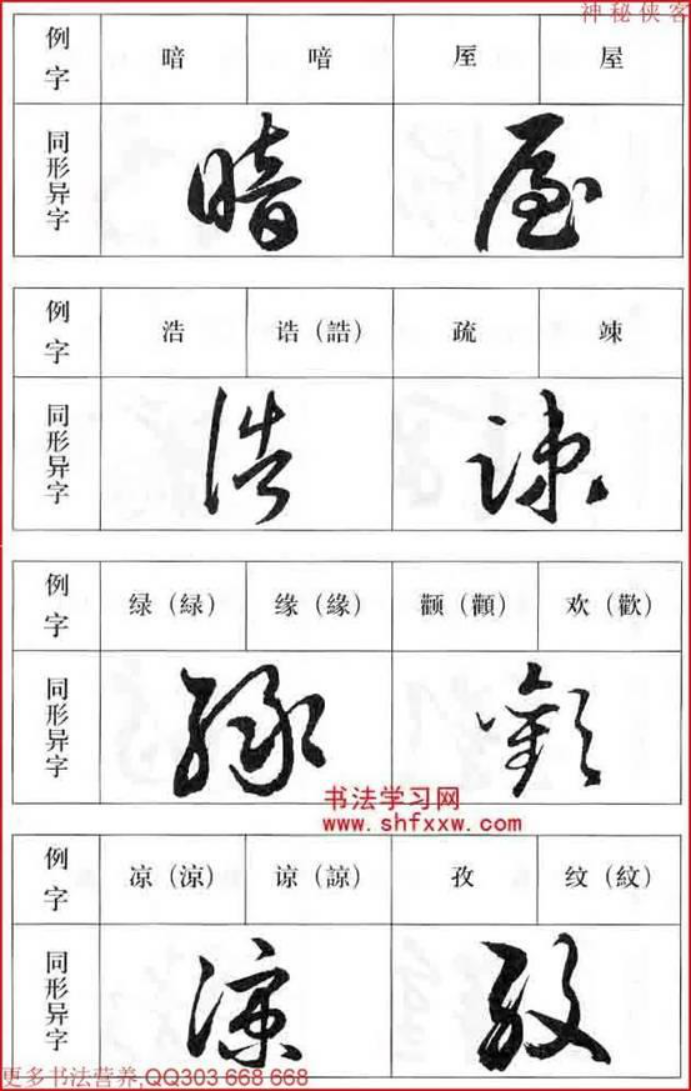 神秘侠客
例字 暗 喑 厔 屋
同形异字 暗 屋
例字 浩 诰（誥） 疏 竦
同形异字
例字 绿（緑） 缘（緣） 颧（顴） 欢（歡）
同形异字
书法学习网
www.shfxxw.com
例字 凉（涼） 谅（諒） 孜 纹（紋）
同形异字
更多书法营养,QQ303 668 668